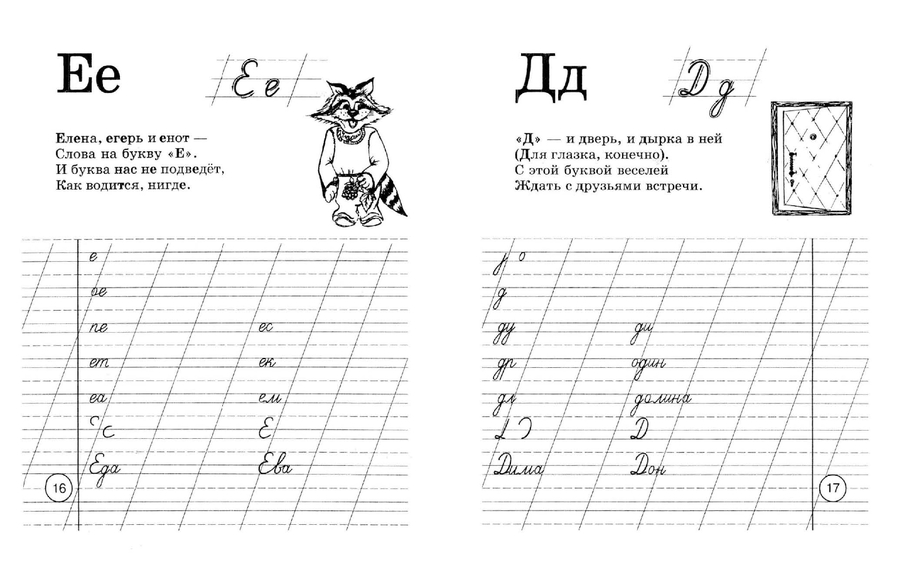 Ее
Ее
Елена, егерь и енот —
Слова на букву «Е».
И буква нас не подведёт,
Как водится, нигде.
е
ое
пе ес
ет ек
еа ем
Е
Еда Ева
16
Дд
Дд
«Д» — и дверь, и дырка в ней
(Для глазка, конечно).
С этой буквой веселей
Ждать с друзьями встречи.
о
д
ду ди
др один
дл долина
Д
Дима Дон
17